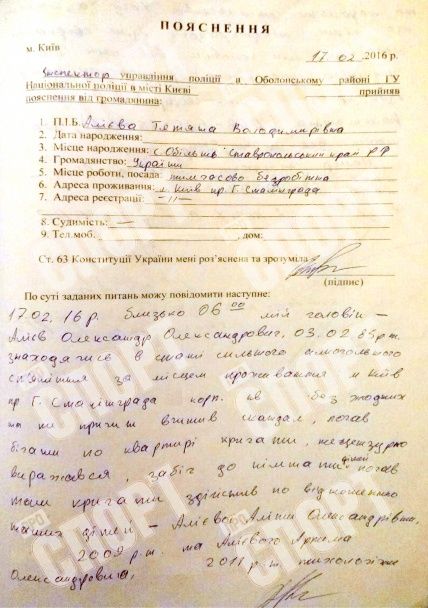 ПОЯСНЕННЯ
м. Київ
17 02 2016 р.
Інспектор управління поліції в Оболонському районі ГУ
Національної поліції в місті Києві прийняв
пояснення від громадянина:
1. П.І.Б. Алієва Тетяна Володимирівна
2. Дата народження:
3. Місце народження: с Обільне Ставропольський край РФ
4. Громадянство: України
5. Місце роботи, посада: тимчасово безробітна
6. Адреса проживання: м Київ пр. Г. Сталінграда
7. Адреса реєстрації: -//-
8. Судимість: —
9. Тел.моб. , дом:
Ст. 63 Конституції України мені роз'яснена та зрозуміла
(підпис)
По суті заданих питань можу повідомити наступне:
17.02.16 р. близько 06 00 мій чоловік –
Алієв Олександр Олександрович, 03.02.85 р.н.
знаходячись в стані сильного алкогольного
сп'яніння за місцем проживання м Київ
пр Г. Сталінграда корп. кв без жодних
на те причин вчинив скандал, почав
бігати по квартирі кричати, нецензурно
виражався, забіг до кімнати дітей почав
там кричати по відношенню
наших дітей – Алієвої Аліни Олександрівни,
2009 р.н. та Алієвого Артема
Олександровича, 2011 р.н.
ПРО СПОРТ